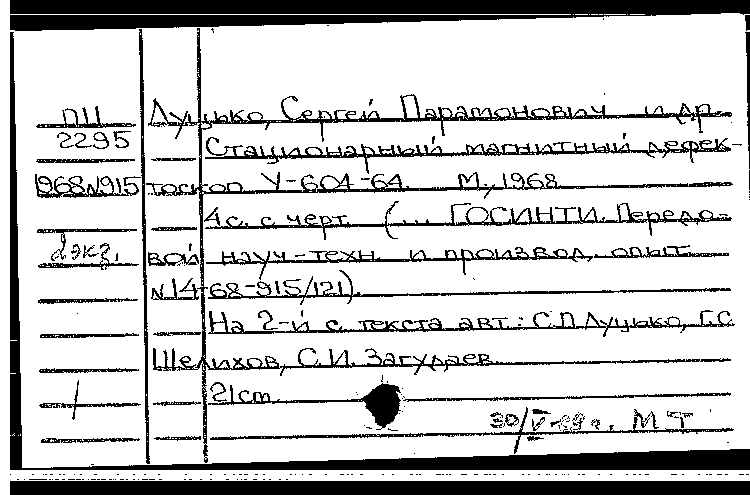 ПЦ Луцько, Сергей Парамонович и др.
2295 Стационарный магнитный дефек-
1968 №915 тоскоп У-604-64. М., 1968
4 с. с черт. (... ГОСИНТИ. Передо-
2 экз. вой науч-техн. и производ. опыт
№14-68-915/121).
На 2-й с. текста авт.: С.П. Луцько, Г.С.
Шелихов, С.И. Загудаев.
21 cm.
30/V-69г. МТ